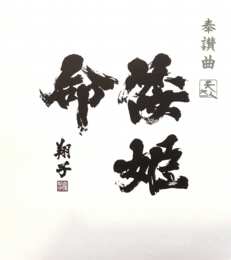 奉讃曲
倭姫
命
翔子